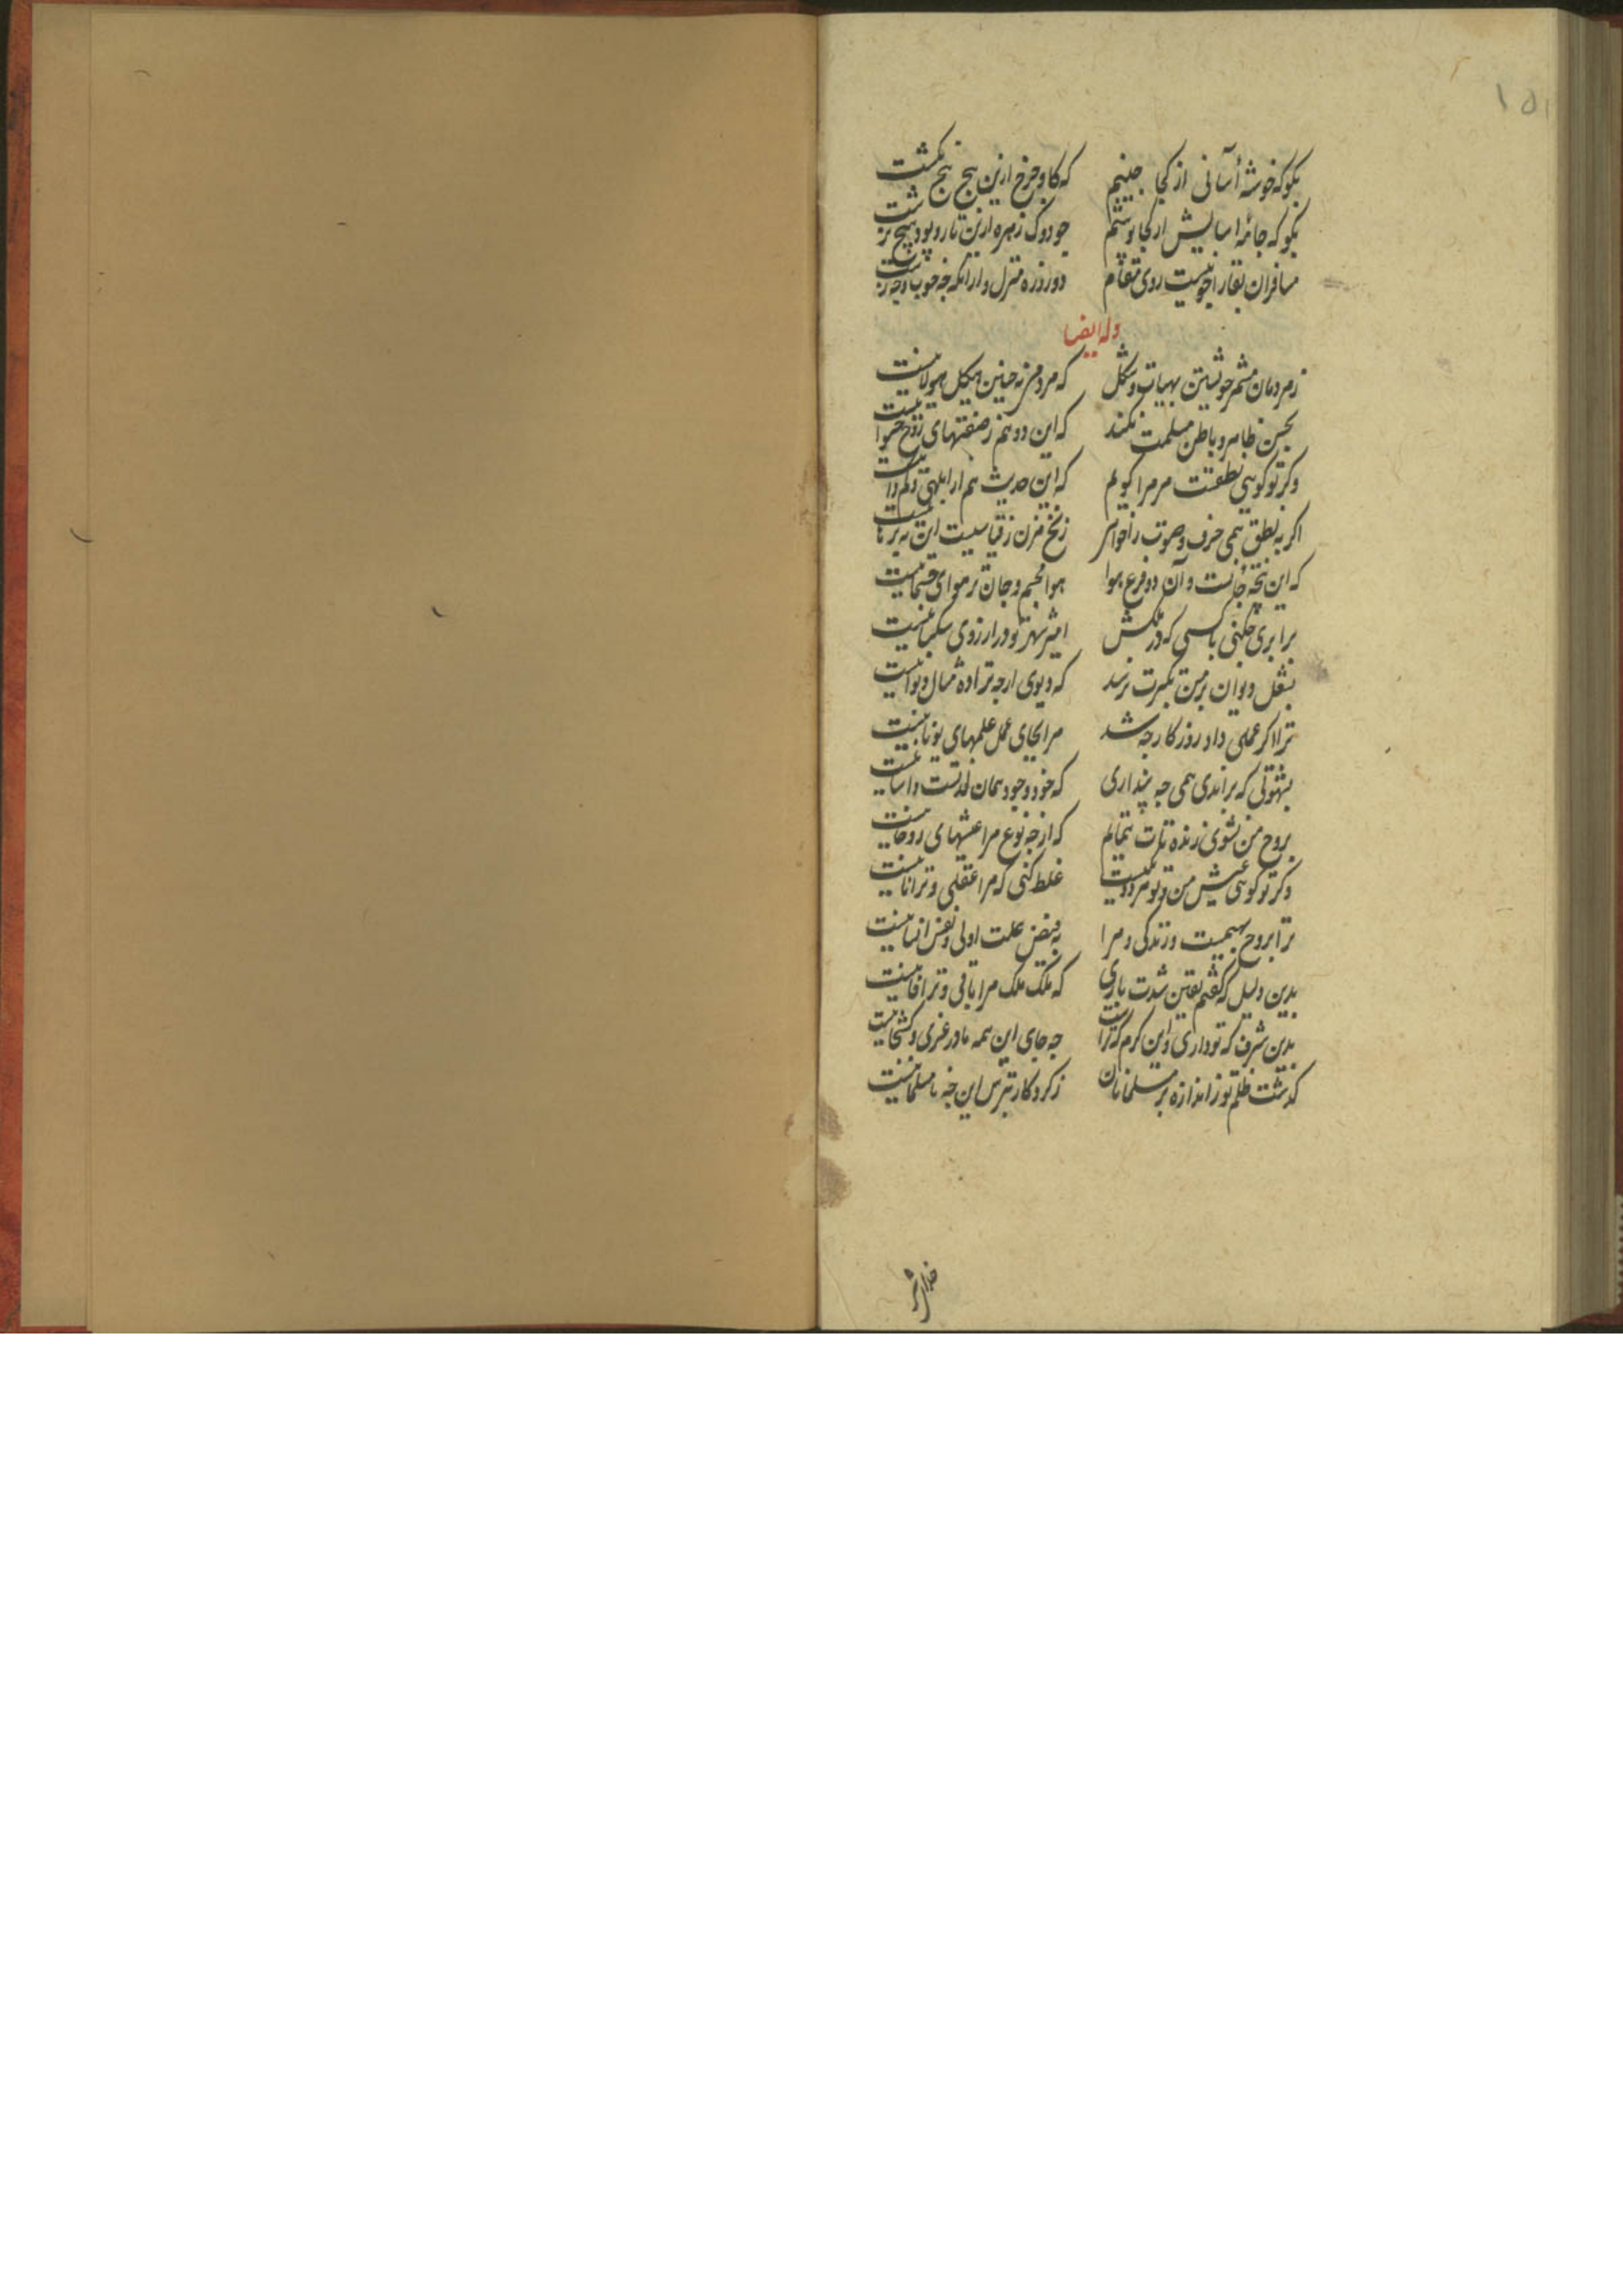 ۱۵۱
بکو که خوشهٔ آسانی از کجا جنیم که کاو چرخ ازین هیچ هیچ نکشت
بکو که جامهٔ اسایش از کجا پوشم جو دوک زهره ازین تار و پود هیچ نرشت
مسافران بقا را چو نیست روی مقام دو روزه منزل و ارامکه چه خوب و چه زشت
وله ایضا
ز مردمان مشمر خویشتن بهیات و شکل که مردمی نه همین هیکل هیولانیست
بحسن ظاهر و باطن مسلمت نکنند که این دو هم ز صفتهای روح حیوانیست
وکر تو کوهی نطقست مر مرا کویم که این حدیث هم از ابلهی و کم دانیست
اکر به نطق همی حرف و صوت را خواهی زنخ مزن ز قیاسیست این نه برهانیست
که این نتیجهٔ جانست و آن دو فرع هوا هوا بجسم و جان تر هوای جسمانیست
برابری چکنی با کسی که در ملکش امیر شهر تو در ارزوی سکبانیست
بشغل دیوان بر من تکبرت نرسد که دیوی ارچه ترا ده مثال دیوانیست
ترا اکر عملی داد روزکار چه شد مرا بجای عمل علمهای یونانیست
بشهوتی که برانی همی چه پنداری که خود وجود همان لذتست و اسانیست
بروح من نشوی زنده تات ننمایم که از چه نوع مرا عیشهای روحانیست
وکر تو کوهی عیش من و تو هر دو یکیست غلط کنی که مرا عقلی و ترا نانیست
ترا بروح بهیمیست و زندکی و مرا به فیض علت اولی و نفس انسانیست
بدین دلیل که کفتم یقین شدت باری که ملک ملک مرا باقی و ترا فانیست
بدین شرف که تو داری و این کرم که تراست چه جای این همه مادر غری و کشخانیست
کذشت ظلم تو ز اندازه بر مسلمانان ز کردکار بترس این چه نامسلمانیست